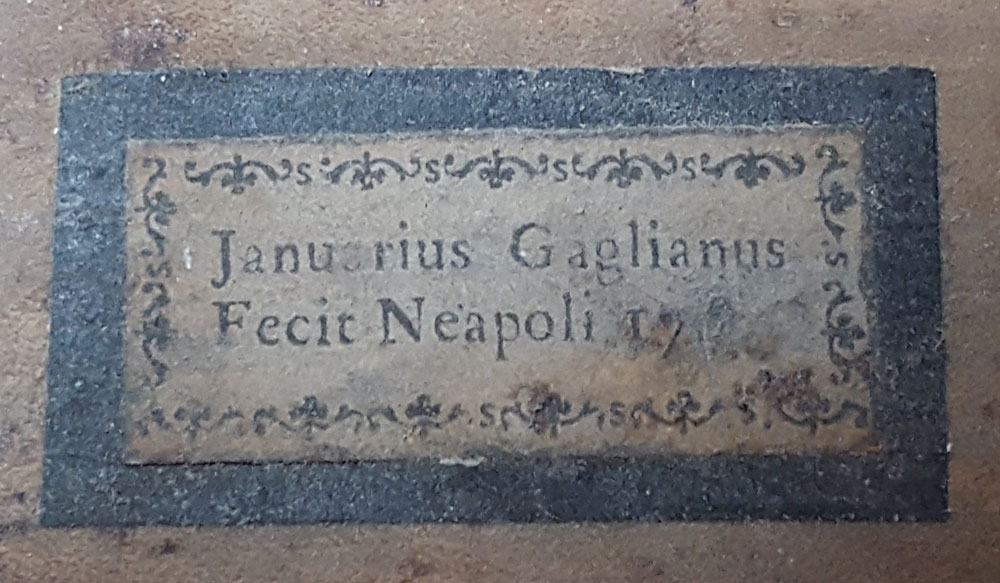 Januarius Gaglianus
Fecit Neapoli